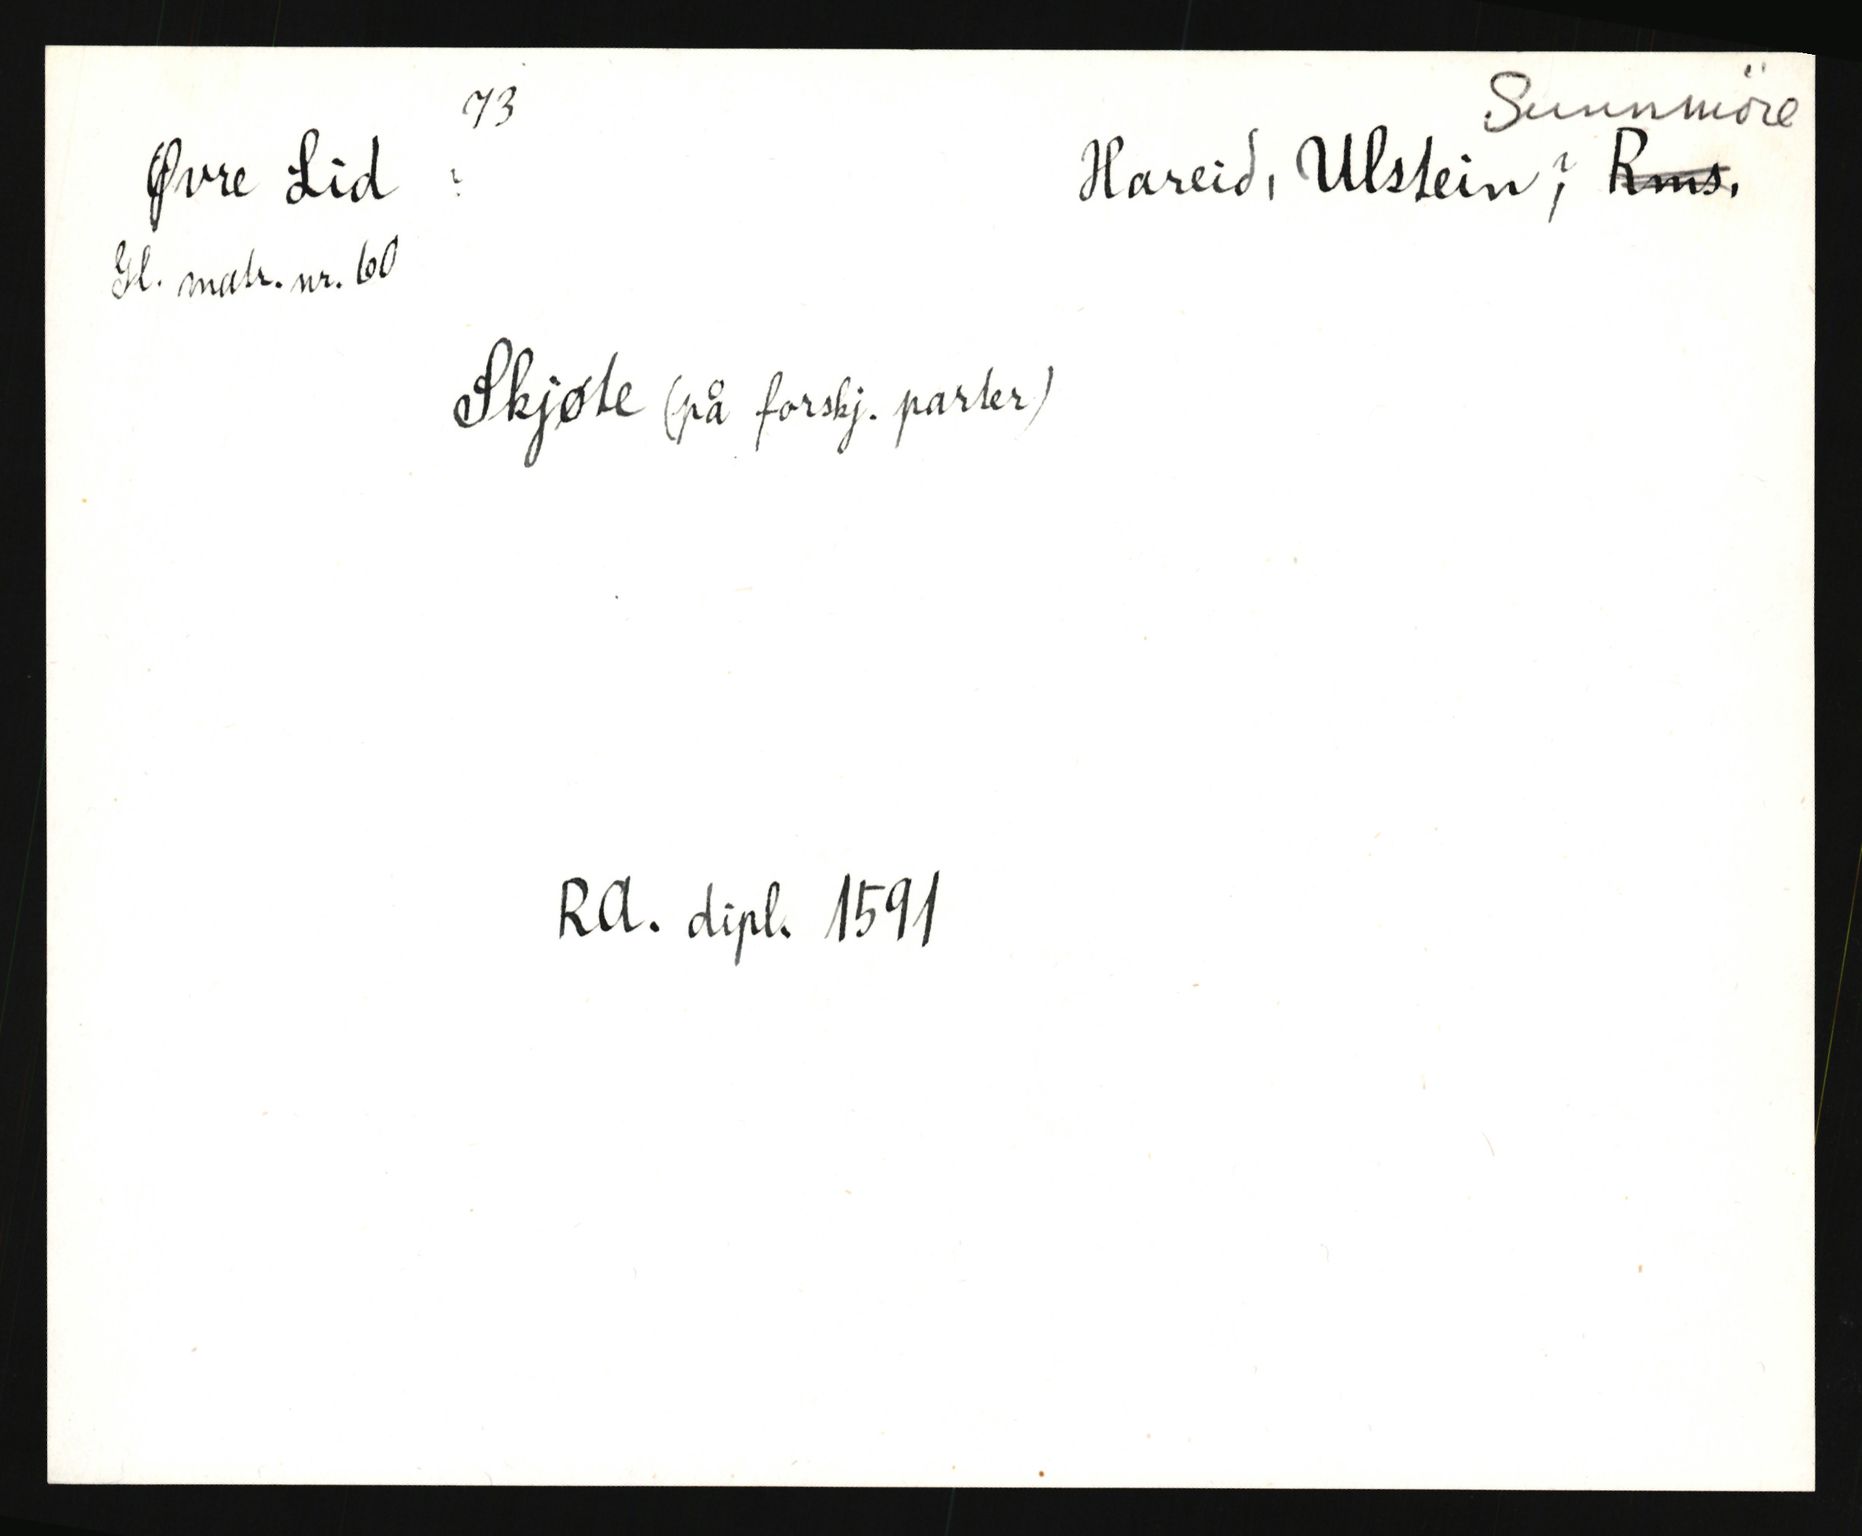 73
Sunnmöre
Øvre Lid : Hareid, Ulstein, ? Rms.
Gl. matr. nr. 60
Skjøte (på forskj. parter)
RA. dipl. 1591